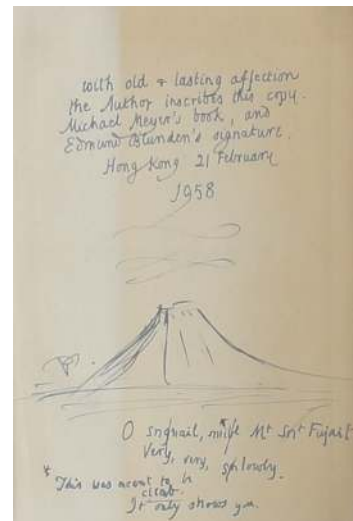 with old & lasting affection
the Author inscribes this copy.
Michael Meyer's book, and
Edmund Blunden's signature.
Hong Kong 21 February
1958
O sngnail, Mt Fujail
Very, very, splowly.
* This was meant to b
climb.
It only shows you.